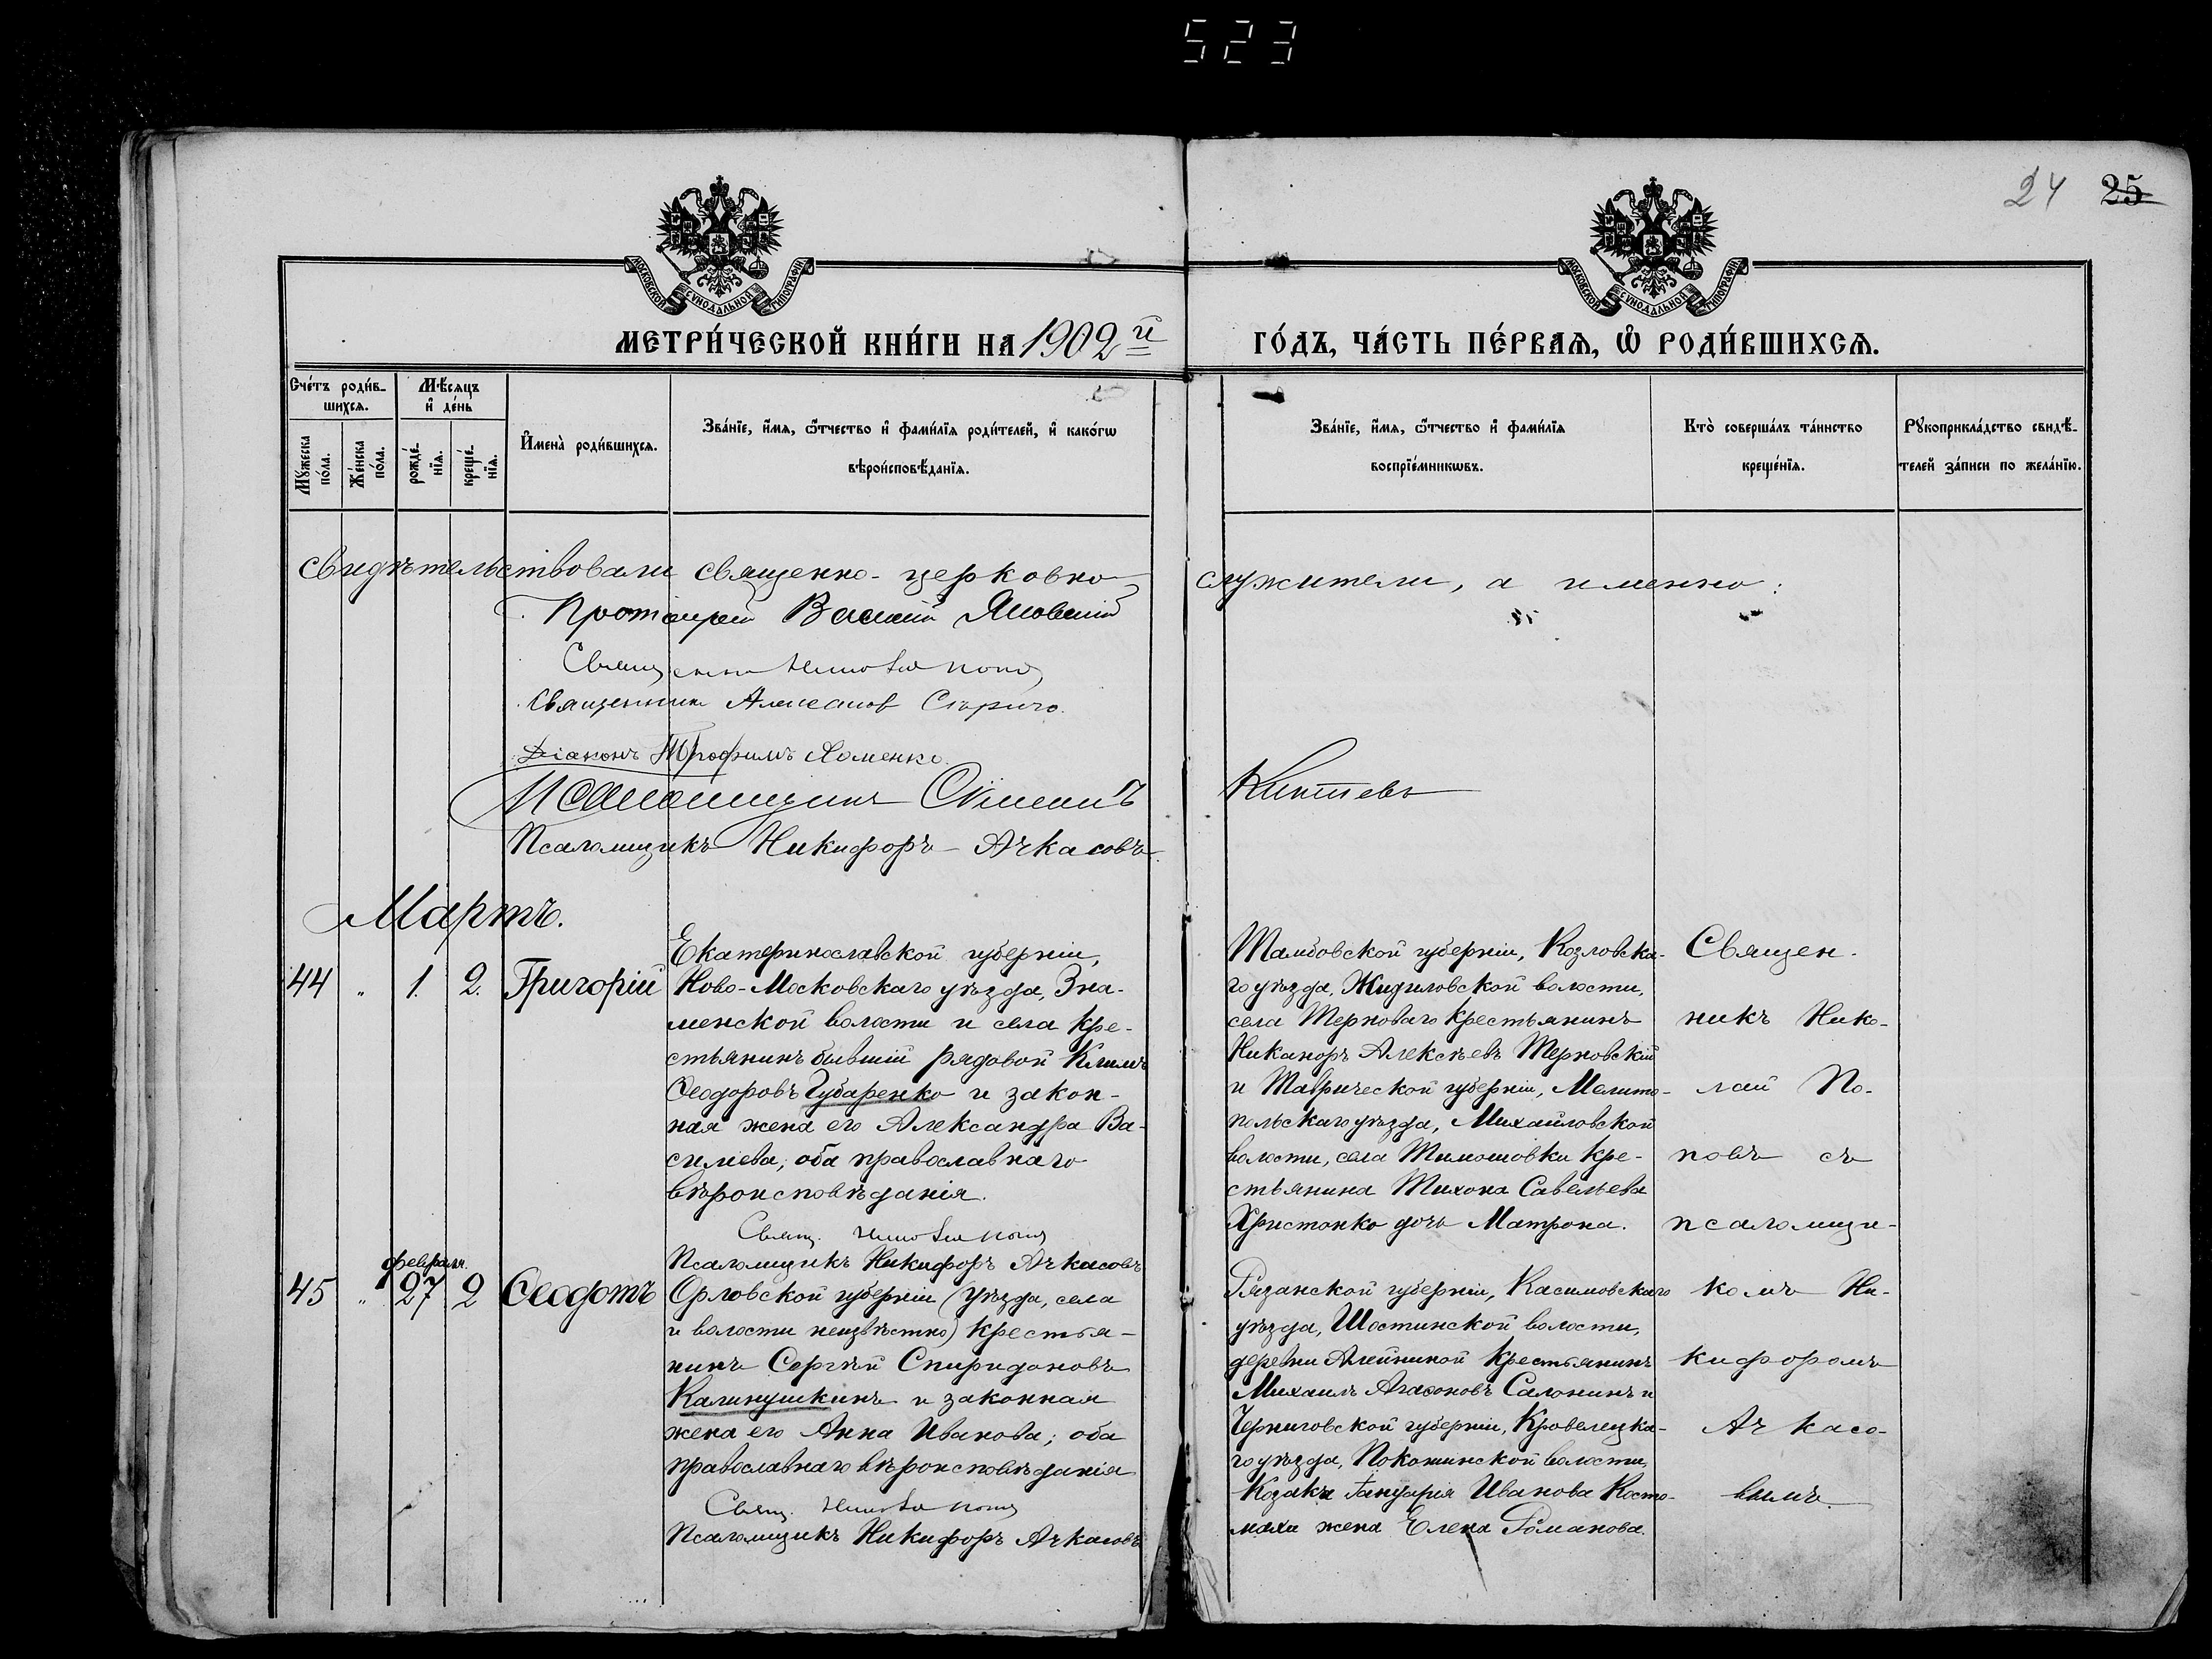 523
24 25
МОСКОВСКОЙ СѴНОДАЛЬНОЙ ТИПОГРАФІИ
МОСКОВСКОЙ СѴНОДАЛЬНОЙ ТИПОГРАФІИ
МЕТРИ́ЧЕСКОЙ КНИ́ГИ НА 1902й
ГО́ДЪ, ЧА́СТЬ ПЕ́РВАѦ, Ѽ РОДИ́ВШИХСѦ.
Сче́тъ роди́в-
шихсѧ.
Мꙋ́жеска по́ла.
Же́нска по́ла.
Мѣ́сѧцъ
и҆ де́нь
рожде́-
нїѧ.
креще́-
нїѧ.
И҆мена̀ роди́вшихсѧ.
Зва́нїе, и҆́мѧ, ѻ҆́тчество и҆ фами́лїѧ роди́телей, и҆ како́гѡ
вѣроисповѣ́данїѧ.
Зва́нїе, и҆́мѧ, ѻ҆́тчество и҆ фами́лїѧ
воспрїе́мникѡвъ.
Кто̀ соверша́лъ та́инство
креще́нїѧ.
Рꙋкоприкла́дство свидѣ́-
телей за́писи по жела́нїю.
свидѣтельствовали священно-церковно
служители, а именно:
Протоіерей Василій
Священникъ
Священникъ
Діаконъ Трофимъ Хоменко
Псаломщикъ
Псаломщикъ Никифоръ Ачкасовъ
Мартъ.
44 " 1. 2. Григорій
Екатеринославской губерніи,
Ново-Московскаго уѣзда, Зна-
менской волости и села кре-
стьянинъ бывшій рядовой Климъ
Ѳеодоровъ Губаренко и закон-
ная жена его Александра Ва-
силиева; оба православнаго
вѣроисповѣданія.
Свящ.
Псаломщикъ Никифоръ Ачкасовъ
Тамбовской губерніи, Козловска-
го уѣзда, Жидиловской волости,
села Терноваго крестьянинъ
Никаноръ Алексѣевъ Терновскій
и Таврической губерніи, Мелито-
польскаго уѣзда, Михайловской
волости, села Тимошовки кре-
стьянина Тихона Савельева
Христонко дочь Матрона.
Священ-
никъ Нико-
лай По-
повъ съ
псаломщи-
комъ Ни-
кифоромъ
Ачкасо-
вымъ.
45 " февраля 27 2 Ѳеодотъ
Орловской губерніи (уѣзда, села
и волости неизвѣстно) крестья-
нинъ Сергѣй Спиридоновъ
Калинушкинъ и законная
жена его Анна Иванова; оба
православнаго вѣроисповѣданія
Свящ.
Псаломщикъ Никифоръ Ачкасовъ
Рязанской губерніи, Касимовскаго
уѣзда, Шостинской волости,
деревни крестьянинъ
Михаилъ Агаѳоновъ Салонинъ и
Черниговской губерніи, Кролевецка-
го уѣзда, волости,
Козака Іануарія Иванова Косто-
махи жена Елена Романова.